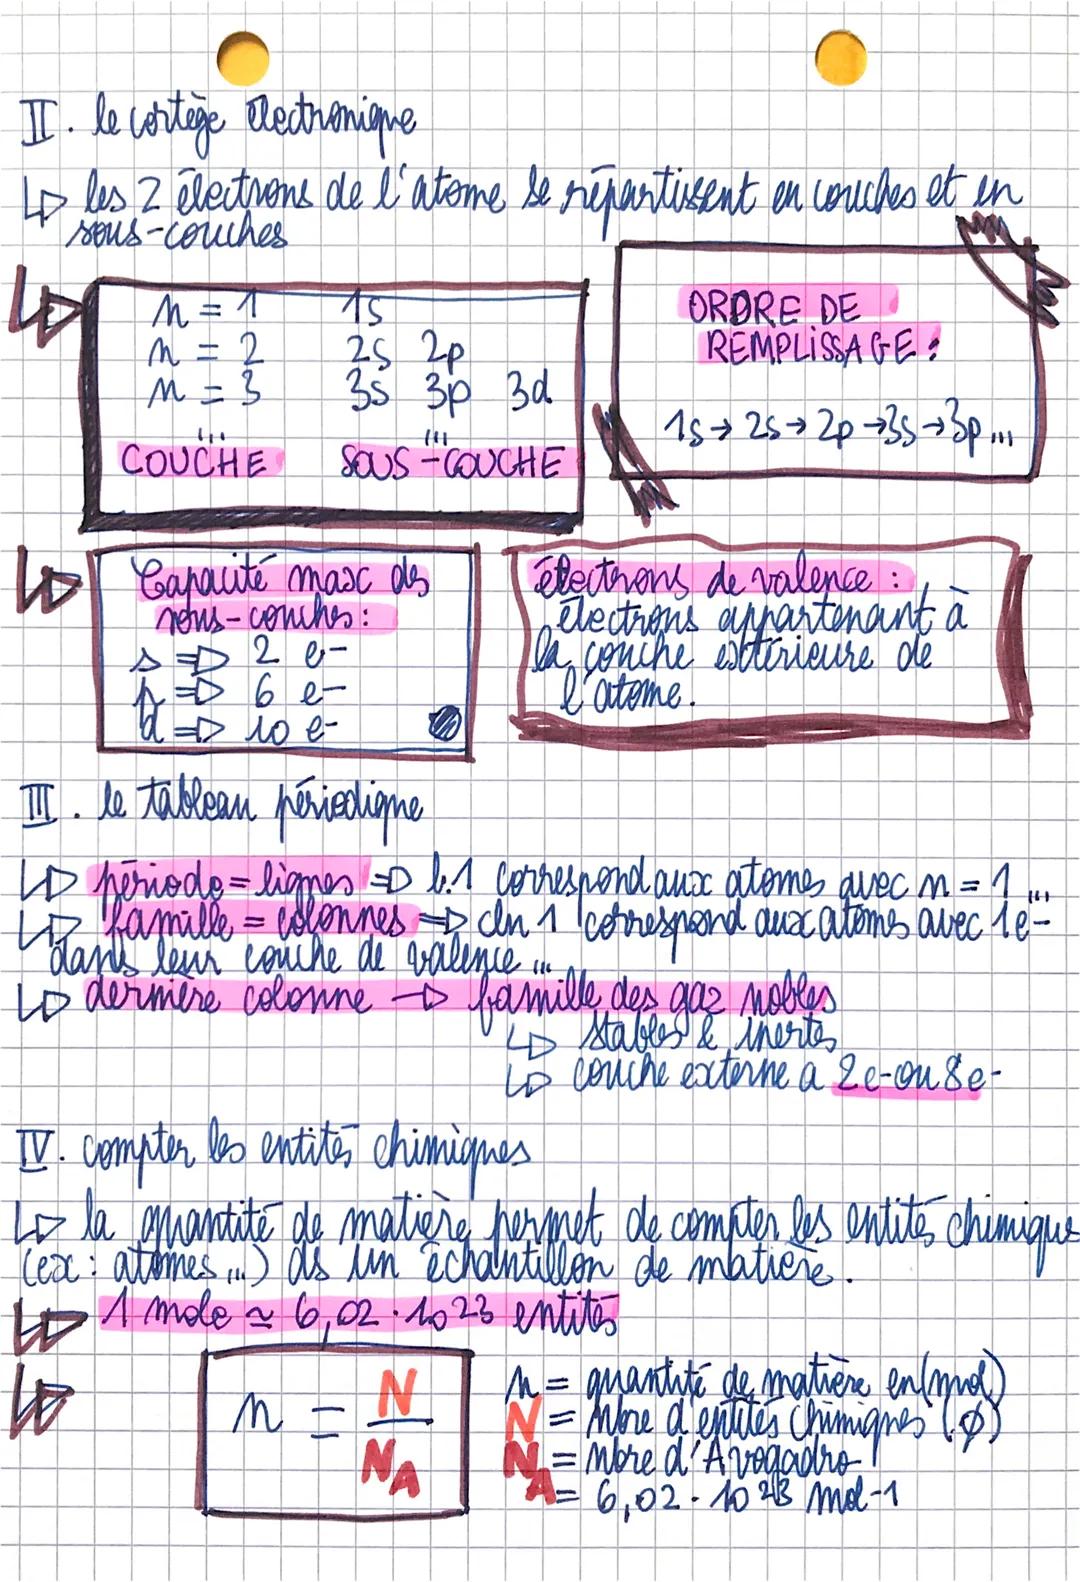 II. le cortège électronique
↳ les Z électrons de l'atome se répartissent en couches et en
sous-couches
n = 1 1s
n = 2 2s 2p
n = 3 3s 3p 3d
... ...
COUCHE SOUS-COUCHE
ORDRE DE
REMPLISSAGE :
1s → 2s → 2p → 3s → 3p ...
Capacité max des
sous-couches :
s ⇒ 2 e-
p ⇒ 6 e-
d ⇒ 10 e-
électrons de valence :
électrons appartenant à
la couche extérieure de
l'atome.
III. le tableau périodique
↳ période = lignes ⇒ l.1 correspond aux atomes avec n = 1 ...
↳ famille = colonnes ⇒ cln 1 correspond aux atomes avec 1e-
dans leur couche de valence ...
↳ dernière colonne → famille des gaz nobles
↳ stables & inertes
↳ couche externe a 2e- ou 8e-
IV. compter les entités chimiques
↳ la quantité de matière permet de compter les entités chimiques
(ex : atomes ...) ds un échantillon de matière.
↳ 1 mole ≃ 6,02 · 10 23 entités
n = N / NA
n = quantité de matière en (mol)
N = nbre d'entités chimiques (Ø)
NA = nbre d'Avogadro
= 6,02 · 10 23 mol-1